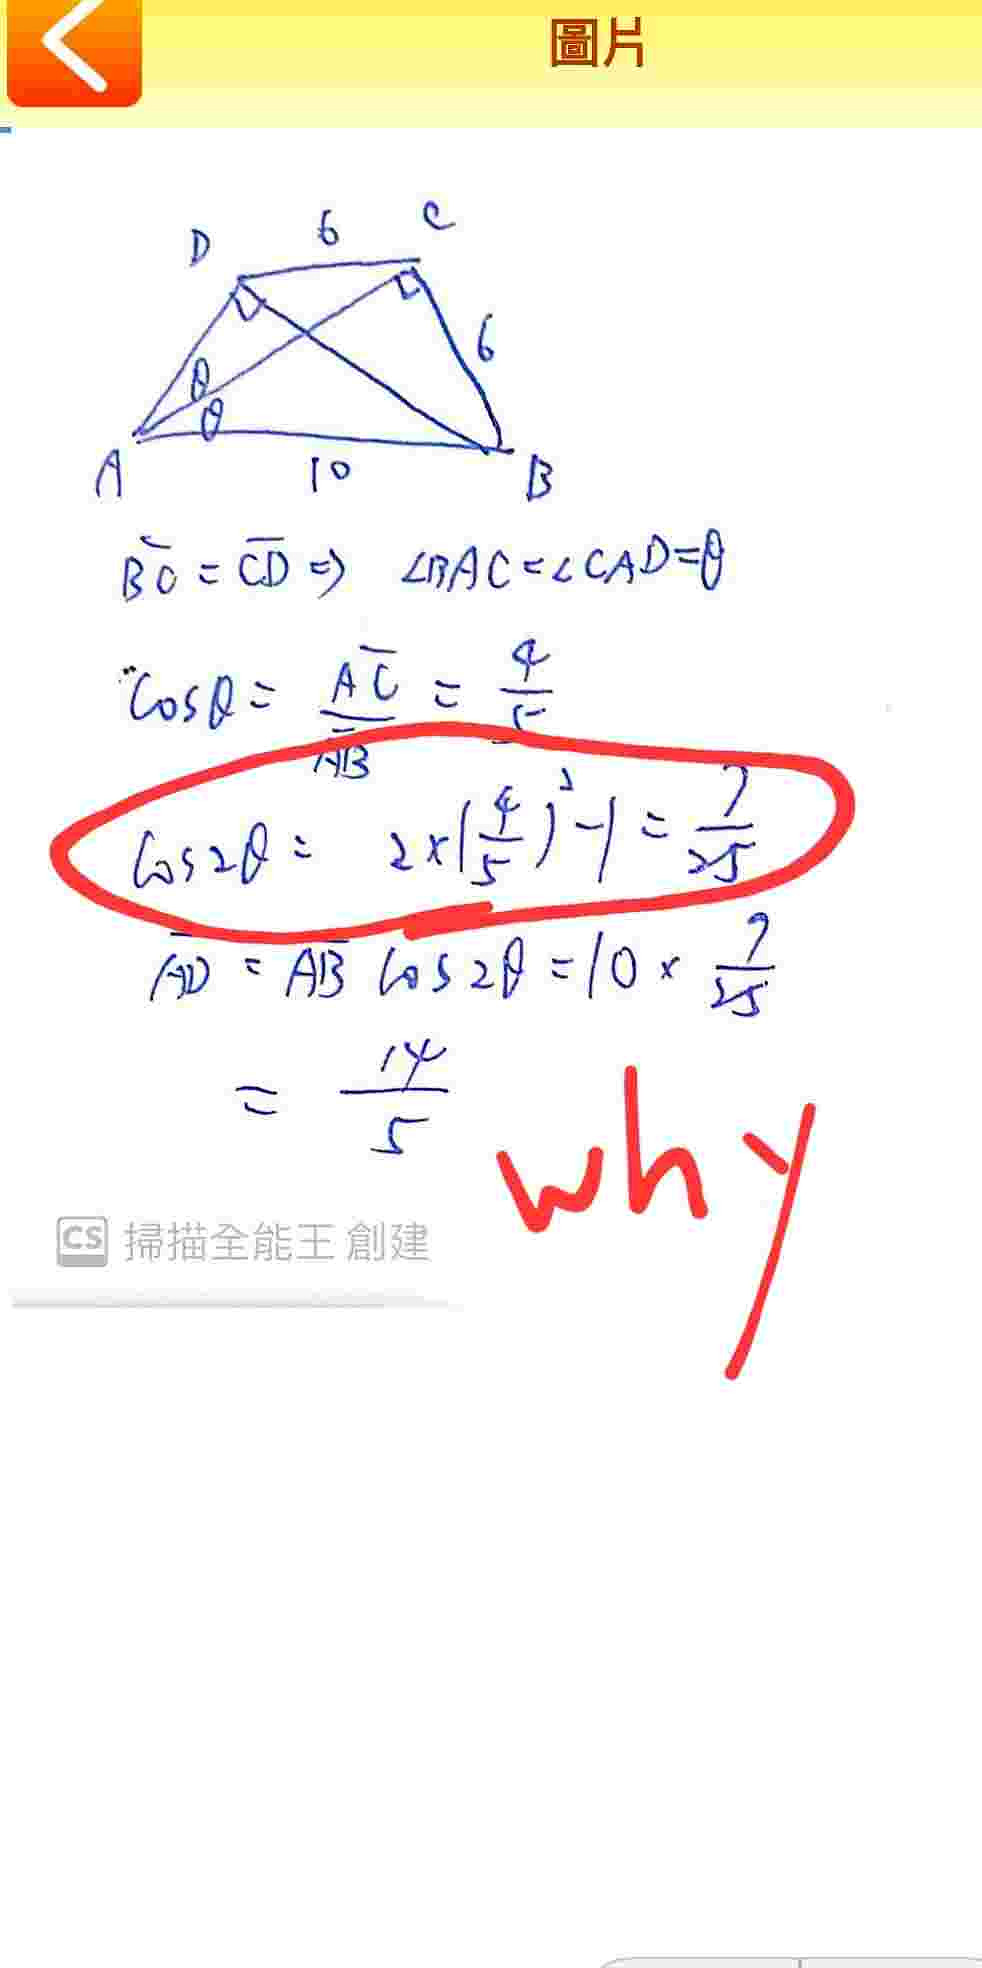 圖片
D 6 C
6
θ
θ
A 10 B
BC = CD ⇒ ∠BAC = ∠CAD = θ
cosθ = AC/AB = 4/5
cos2θ = 2×(4/5)²-1 = 7/25
AD = AB cos2θ = 10 × 7/25
= 14/5
why
CS 掃描全能王 創建